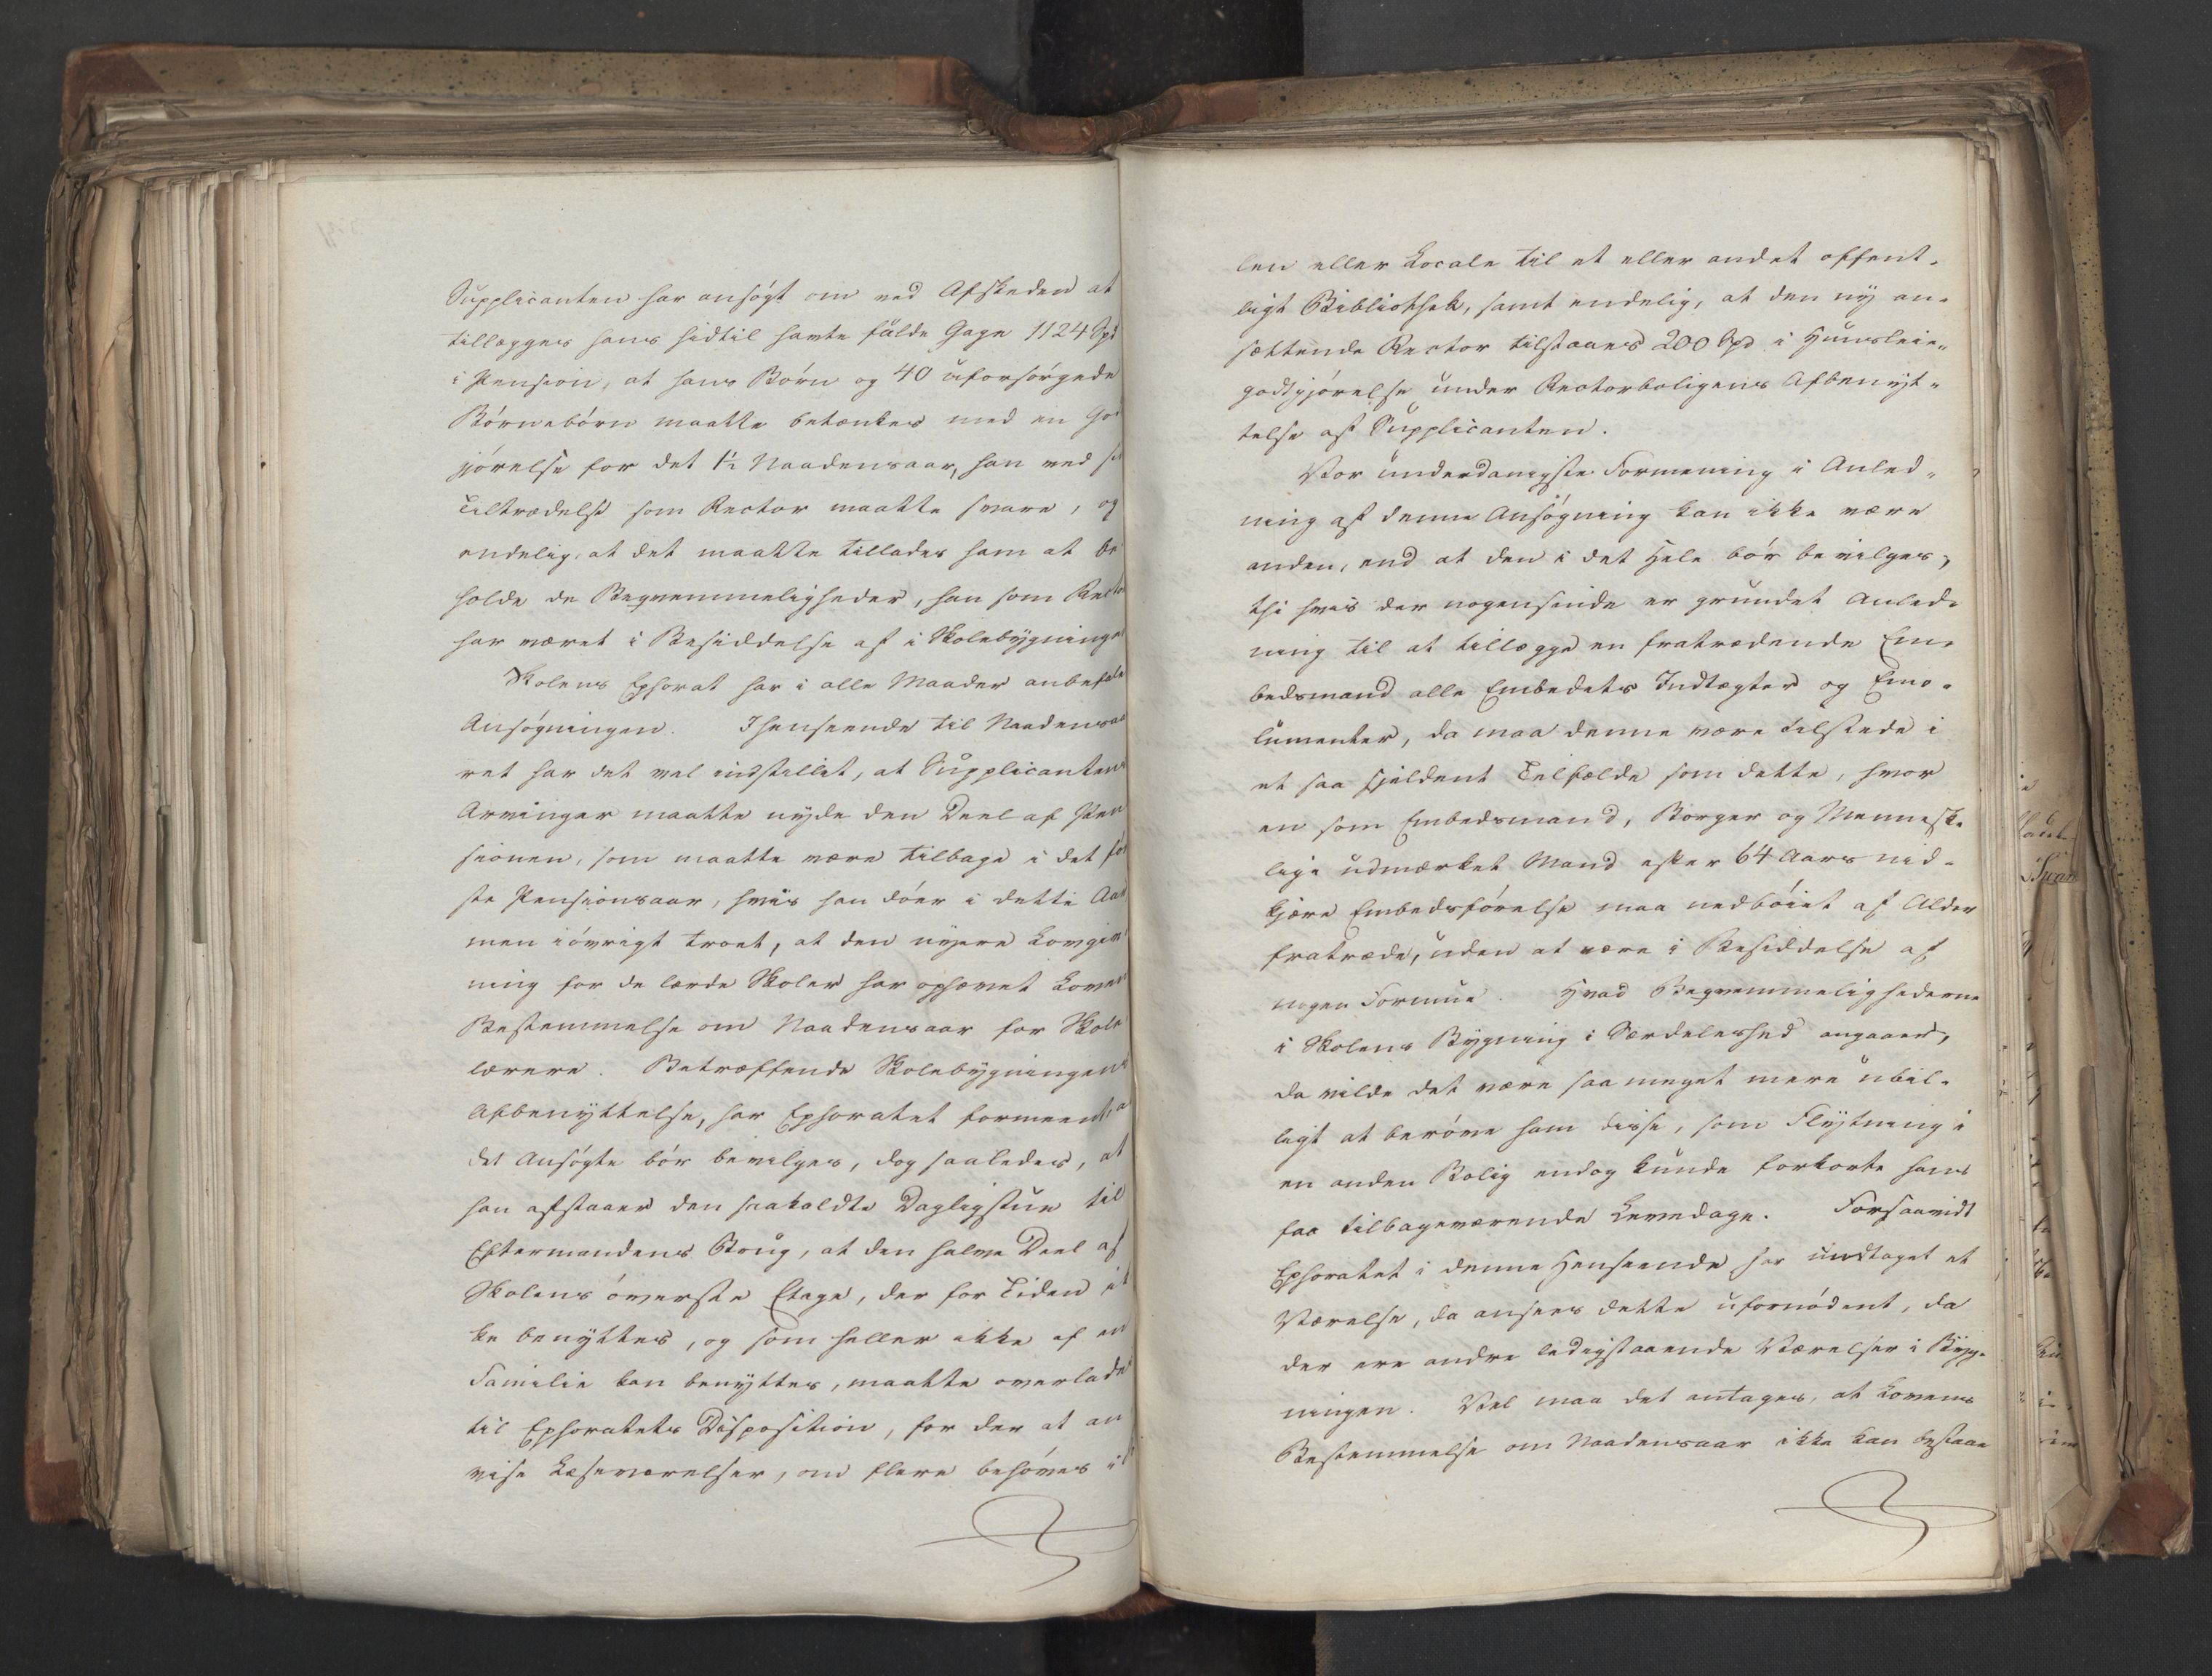 Supplicanten har ansøgt om ved Afskeden at
tillægges hans hidtil havte fulde Gage 1124 Spd
i Pension, at hans Børn og 40 uforsørgede
Børnebørn maatte betænkes med en God
gjørelse for det 1½ Naadensaar, han ved sin
Tiltrædelse som Rector maatte svare, og
endelig, at det maatte tillades ham at be
holde de Beqvemmeligheder, han som Rector
har været i Besiddelse af i Skolebygningen
Skolens Ephorat har i alle Maader anbefalet
Ansøgningen. Ihenseende til Naadensaa
ret har det vel indstillet, at Supplicantens
Arvinger maatte nyde den Deel af Pen
sionen, som maatte være tilbage i det før
ste Pensionsaar, hvis han døer i dette Aar
men iøvrigt troet, at den nyere Lovgiv
ning for de lærde Skoler har ophævet Lovens
Bestemmelse om Naadensaar for Skole
lærere. Betræffende Skolebygningens
Afbenyttelse, har Ephoratet formeent, at
det Ansøgte bør bevilges, dog saaledes, at
han afstaaer den saakaldte Dagligstue til
Eftermandens Brug, at den halve Deel af
Skolens øverste Etage, der for Tiden ik
ke benyttes, og som heller ikke af en
Familie kan benyttes, maatte overlades
til Ephoratets Disposition, for der at an
vise Læseværelser, om flere behøves i
len eller Locale til et eller andet offent-
ligt Bibliothek, samt endelig, at den ny an-
sættende Rector tilstaaes 200 Spd i Huusleie-
godtgjørelse under Rectorboligens Afbenyt-
telse af Supplicanten.
Vor underdanigste Formening i Anled-
ning af denne Ansøgning kan ikke være
anden, end at den i det Hele bør bevilges,
thi hvis der nogensinde er grundet Anled-
ning til at tillægge en fratrædende Em-
bedsmand alle Embedets Indtægter og Emo-
lumenter, da maa denne være tilstede i
et saa sjeldent Tilfælde som dette, hvor
en som Embedsmand, Borger og Menneske
lige udmærket Mand efter 64 Aars nid-
kjære Embedsførelse maa nedbøiet af Alder
fratræde, uden at være i Besiddelse af
nogen Formue. Hvad Beqvemmelighederne
i Skolens Bygning i Særdeleshed angaaer,
da vilde det være saa meget mere ubil-
ligt at berøve ham disse, som Flytning i
en anden Bolig endog kunde forkorte hans
faa tilbageværende Levedage. Forsaavidt
Ephoratet i denne Henseende har undtaget et
Værelse, da ansees dette ufornødent, da
der ere andre ledigstaaende Værelser i Byg-
ningen. Vel maa det antages, at Lovens
Bestemmelse om Naadensaar ikke kan bestaae